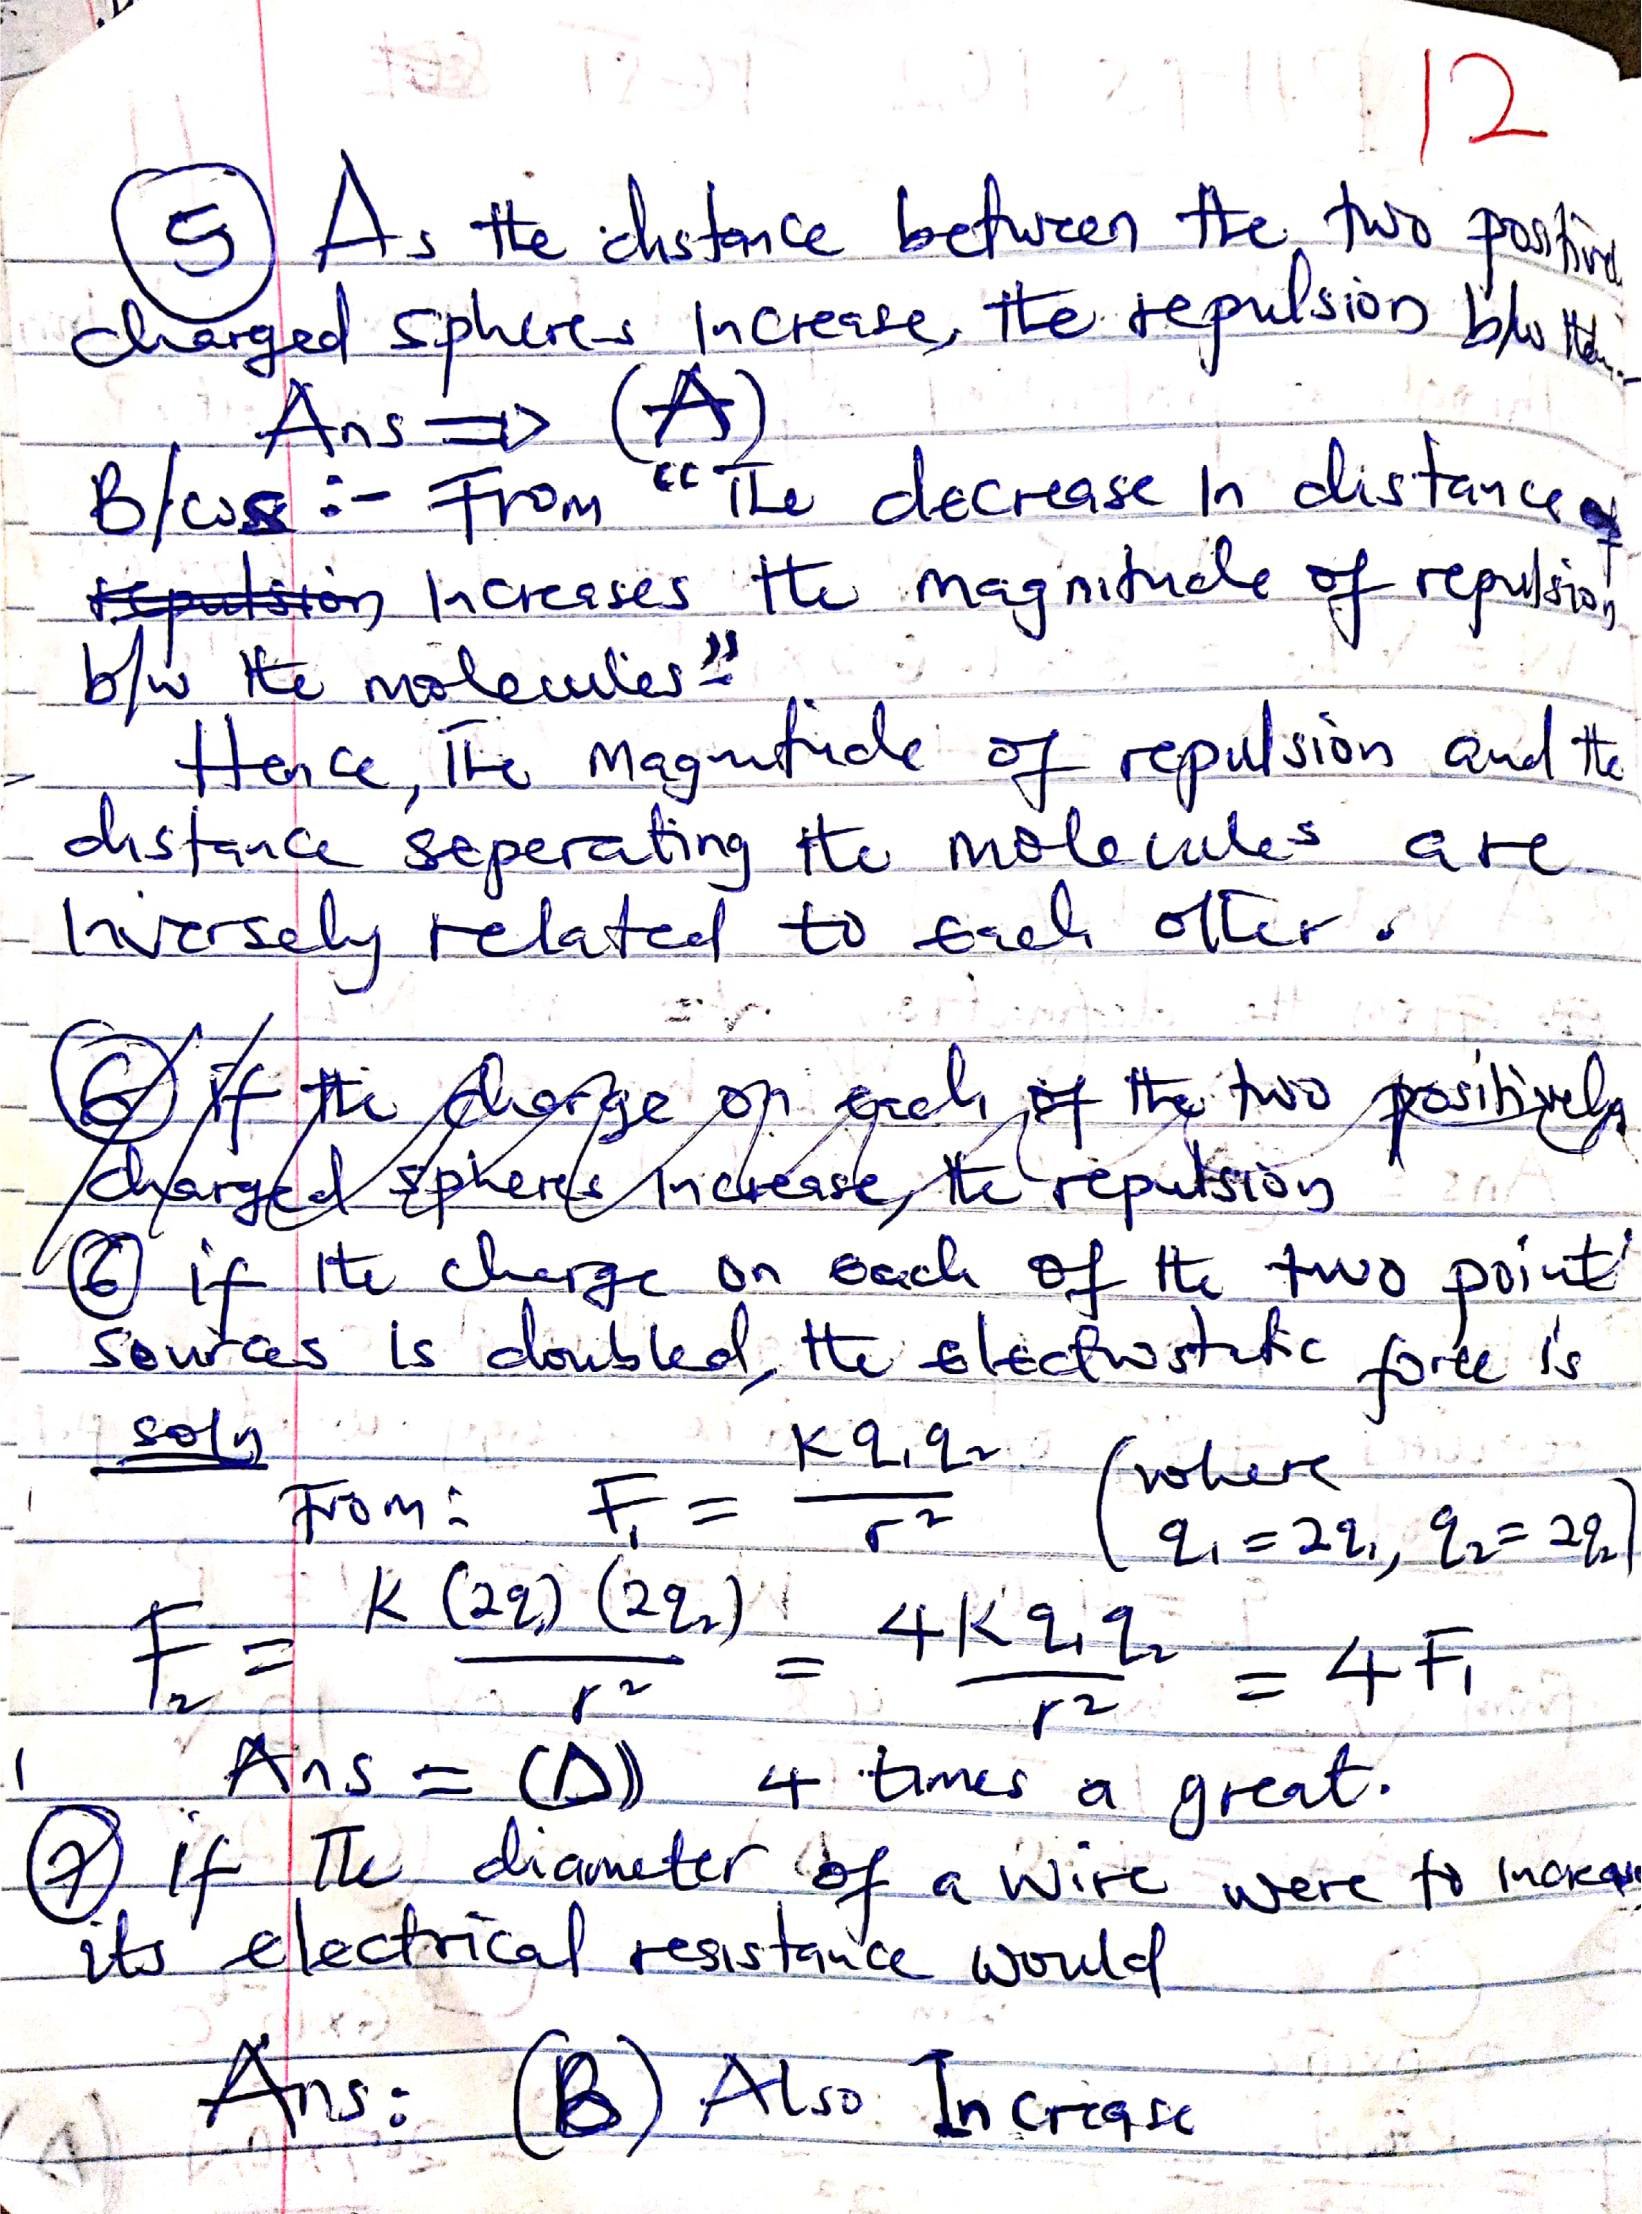 12
(5) As the distance between the two positive
charged spheres increase, the repulsion b/w them
Ans => (A)
B/cos :- From "The decrease in distance of
repulsion increases the magnitude of repulsion
b/w the molecules"
Hence, The Magnitude of repulsion and the
distance seperating the molecules are
inversely related to each other.
(6) if the charge on each of the two positively
charged spheres increase, the repulsion
(6) if the charge on each of the two point
sources is doubled, the electrostatic force is
soln
From: F₁ = Kq₁q₂/r² (where q₁ = 2q₁, q₂ = 2q₂)
F₂ = K(2q₁)(2q₂)/r² = 4Kq₁q₂/r² = 4F₁
Ans = (D) 4 times a great.
(7) if The diameter of a wire were to increase
its electrical resistance would
Ans: (B) Also Increase